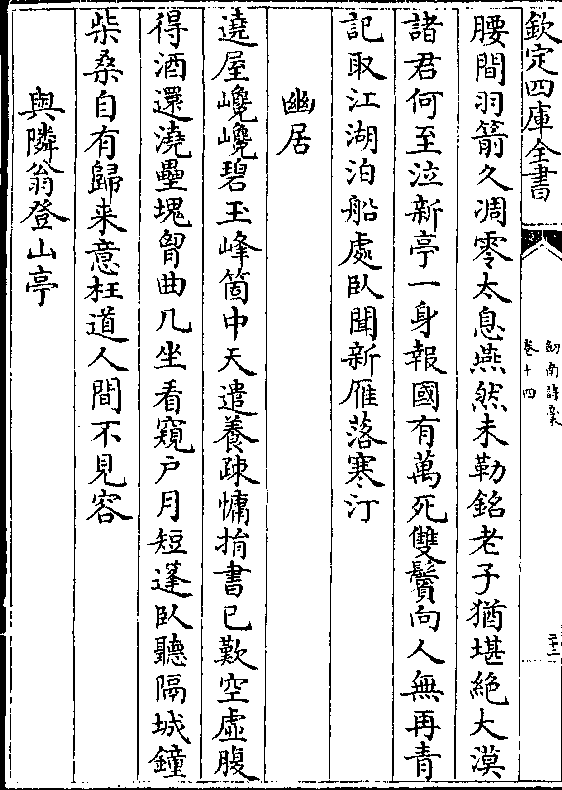 欽定四庫全書
劒南詩槀
卷十四
二十二
腰間羽箭久凋零太息燕然未勒銘老子猶堪絶大漠
諸君何至泣新亭一身報國有萬死雙鬢向人無再青
記取江湖泊船處臥聞新雁落寒汀
幽居
遶屋巉巉碧玉峰箇中天遣養疎慵揹書已歎空虛腹
得酒還澆壘塊胷曲几坐看窺户月短蓬臥聽隔城鐘
柴桑自有歸来意枉道人間不見容
與隣翁登山亭